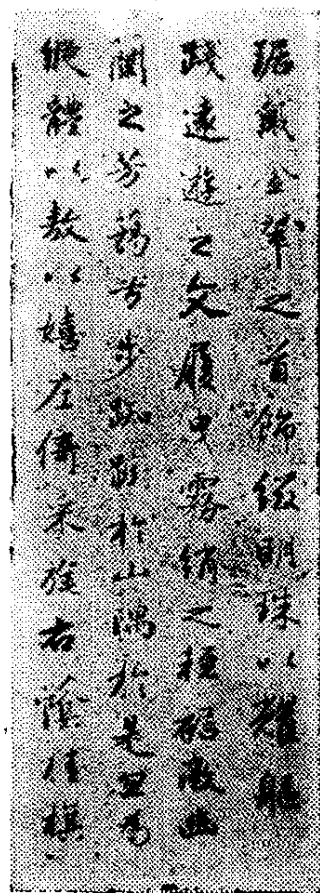 琚戴金翠之首飾綴明珠以耀軀
踐遠遊之文履曳霧綃之輕裾微幽
蘭之芳藹兮步踟躕於山隅於是忽焉
縱體以敖以嬉左倚采旄右蔭桂旗